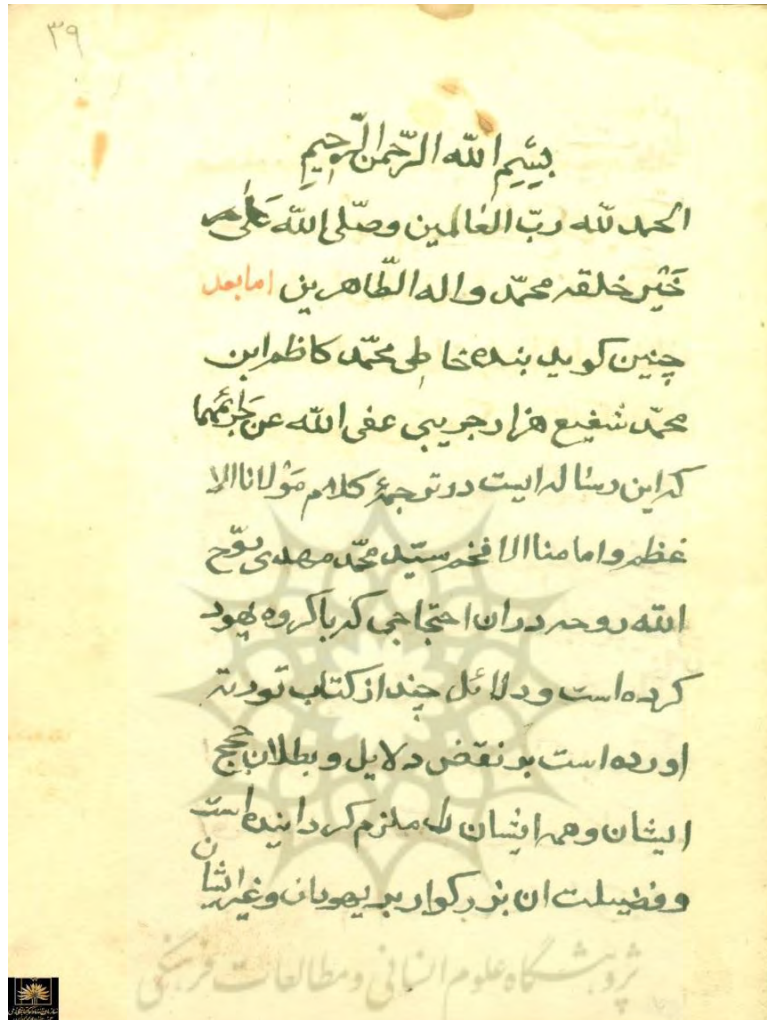 ۳۹
بِسْمِ اللّه الرّحمن الرّحِيمِ
الحمد للّه ربّ العٰالمین وصلّی اللّه عَلٰی
خَیْر خلقه محمّد واله الطّاهرین امابعد
چنین کوید بنده خاطِی محمّد کاظم ابن
محمّد شفیع هزارجریبی عفی اللّه عن جرائمهما
که این رساله ایست در ترجمهٔ کلام مَوْلانا الا
عظم و امامنا الا فخم سیّد محمّد مهدی روّح
اللّه روحه دران احتجاجی که با کروه یهود
کرده است و دلائل چند از کتاب توریة
اورده است بر نقض دلایل و بطلان حجج
ایشان و همه ایشان را ملزم کردانیده است
و فضیلت ان بزرکوار بر یهودان و غیر ایشان
پژوهشگاه علوم انسانی و مطالعات فرهنگی